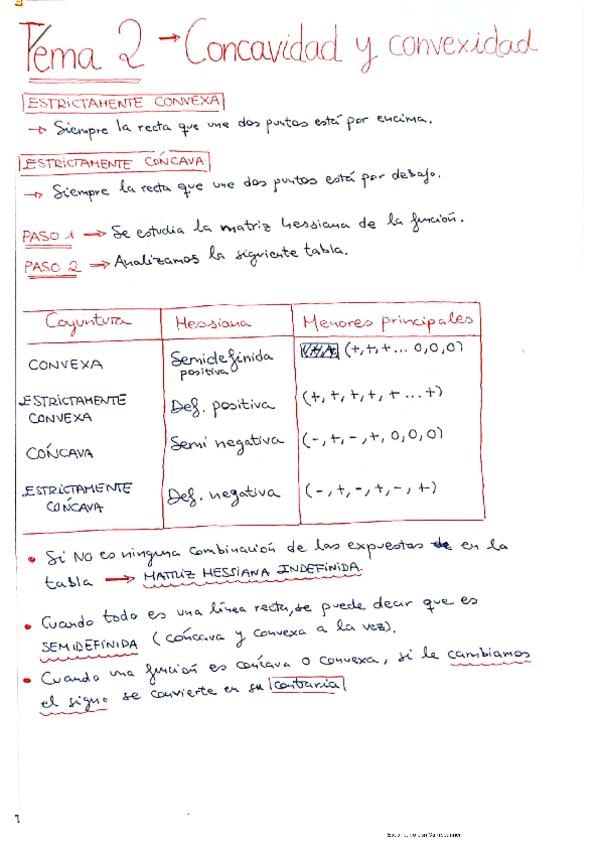 Tema 2 → Concavidad y convexidad
ESTRICTAMENTE CONVEXA
→ Siempre la recta que une dos puntos está por encima.
ESTRICTAMENTE CÓNCAVA
→ Siempre la recta que une dos puntos está por debajo.
PASO 1 → Se estudia la matriz hessiana de la función.
PASO 2 → Analizamos la siguiente tabla.
Coyuntura Hessiana Menores principales
CONVEXA Semidefinida positiva (+,+,+... 0,0,0)
ESTRICTAMENTE CONVEXA Def. positiva (+,+,+,+,+...+)
CÓNCAVA Semi negativa (-,+,-,+,0,0,0)
ESTRICTAMENTE CÓNCAVA Def. negativa (-,+,-,+,-,+)
• Si NO es ninguna combinación de las expuestas en la
tabla → MATRIZ HESSIANA INDEFINIDA.
• Cuando todo es una línea recta, se puede decir que es
SEMIDEFINIDA (cóncava y convexa a la vez).
• Cuando una función es cóncava o convexa, si le cambiamos
el signo se convierte en su contraria
1